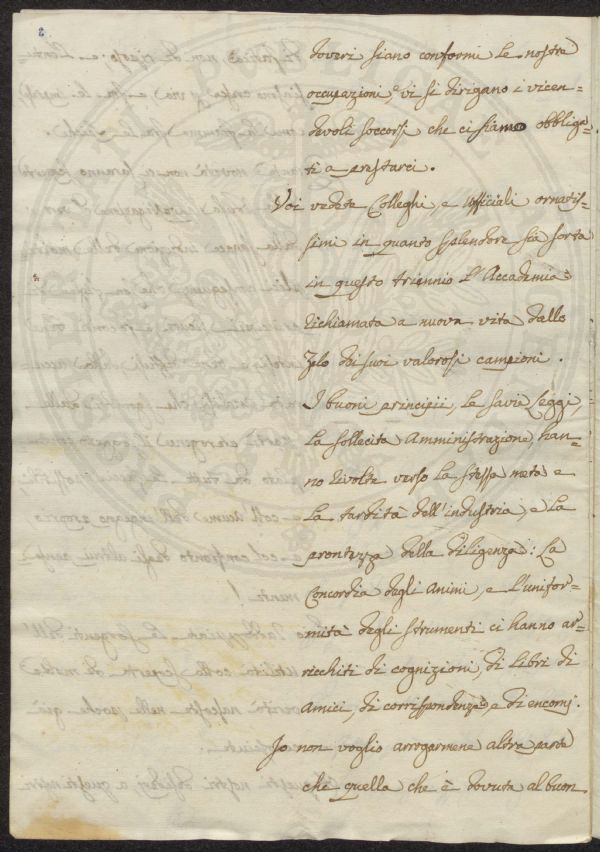 3
doveri siano conformi le nostre
occupazioni, e vi si dirigano i vicen=
devoli soccorsi che ci siamo obbliga=
ti a prestarci.
Voi vedete Colleghi, e Ufficiali ornatis=
simi in quanto splendore sia sorta
in questo triennio l'Accademia
richiamata a nuova vita dallo
Zelo dei suoi valorosi campioni.
I buoni principii, le savie Leggi,
la sollecita Amministrazione, han=
no rivolte verso la stessa meta e
la tardità dell'industria, e la
prontezza della diligenza: La
Concordia degli Animi, e l'unifor=
mità degli strumenti ci hanno ar=
ricchiti di cognizioni, di Libri di
Amici, di corrispondenze, e di encomj.
Io non voglio arrogarmene altra parte
che quella che è dovuta al buon